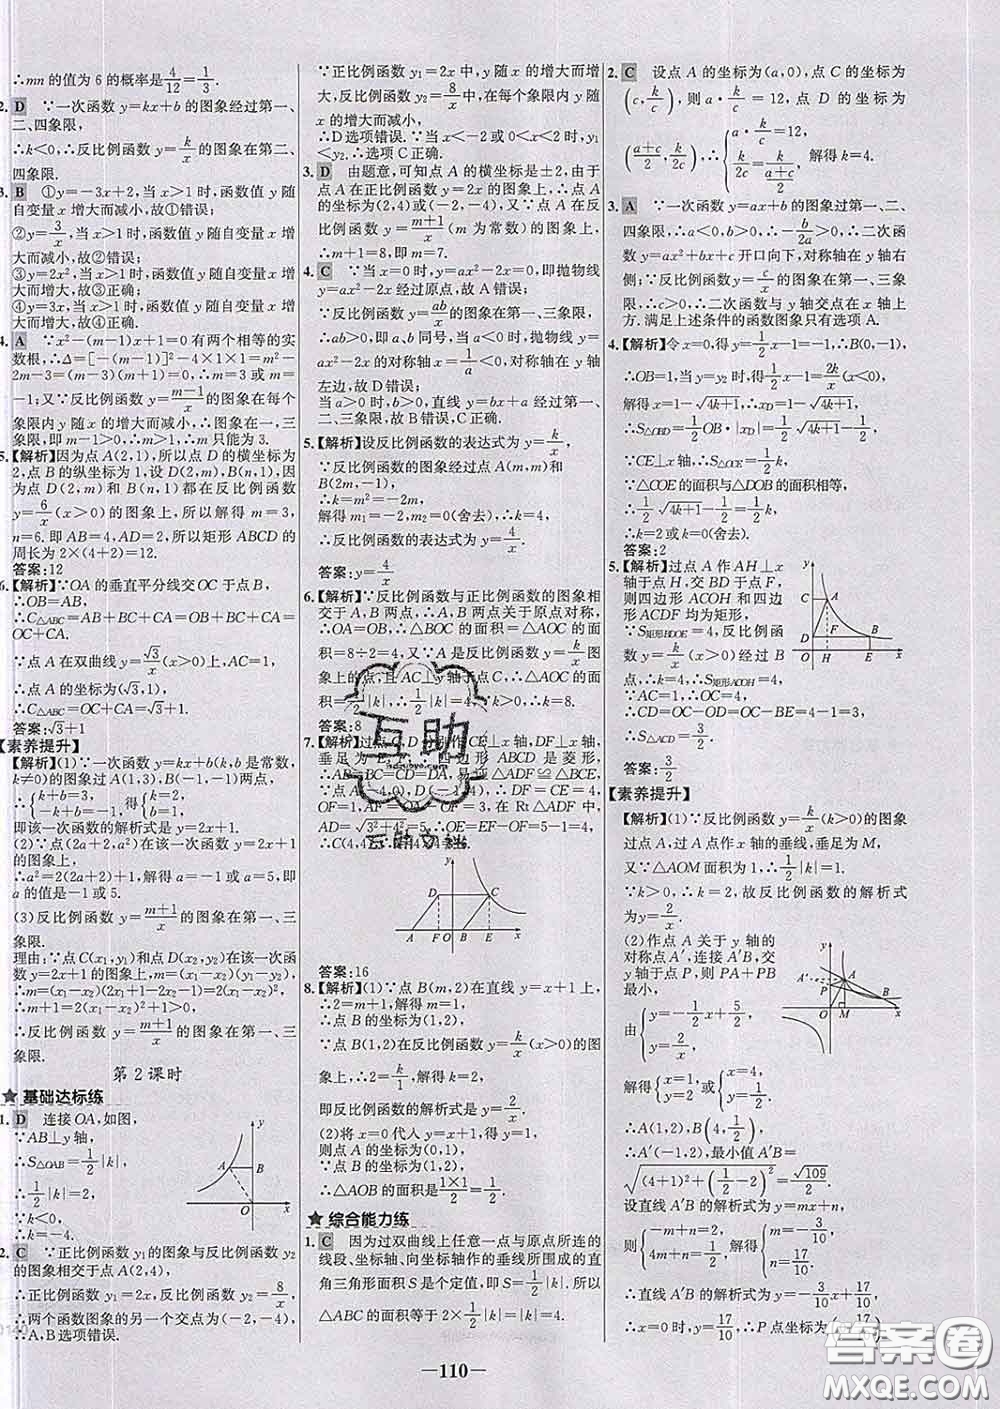 ∴mn 的值为 6 的概率是4/12=1/3.
2. D ∵一次函数 y=kx+b 的图象经过第一、
二、四象限,
∴k<0,∴反比例函数 y=k/x的图象在第二、
四象限.
3. B ①y=-3x+2,当 x>1 时,函数值 y 随
自变量 x 增大而减小,故①错误;
②y=3/x,当 x>1 时,函数值 y 随自变量 x 增
大而减小,故②错误;
③y=2x²,当 x>1 时,函数值 y 随自变量 x 增
大而增大,故③正确;
④y=3x,当 x>1 时,函数值 y 随自变量 x 增
大而增大,故④正确.
4. A ∵x²-(m-1)x+1=0 有两个相等的实
数根,∴Δ=[-(m-1)]²-4×1×1=m²-
2m-3=(m-3)(m+1)=0,∴m=3 或 m=
-1;又∵反比例函数 y=m-1/x的图象在每个
象限内 y 随 x 的增大而减小,∴在一、三象
限,即 m-1>0,∴m>1,∴m 只能为 3.
5.【解析】因为点 A(2,1),所以点 D 的横坐标为
2,点 B 的纵坐标为 1,设 D(2,m),B(n,1),因
为点 D(2,m)和 B(n,1)都在反比例函数
y=6/x(x>0)的图象上,所以解得 m=3,
n=6. 即 AB=4,AD=2,所以矩形 ABCD 的
周长为 2×(4+2)=12.
答案:12
6.【解析】∵OA 的垂直平分线交 OC 于点 B,
∴OB=AB,
∴C△ABC=AB+BC+CA=OB+BC+CA=
OC+CA.
∵点 A 在双曲线 y=√3/x(x>0)上,AC=1,
∴点 A 的坐标为(√3,1),
∴C△ABC=OC+CA=√3+1.
答案:√3+1
【素养提升】
【解析】(1)∵一次函数 y=kx+b(k,b 是常数,
k≠0)的图象过 A(1,3),B(-1,-1)两点,
∴{k+b=3, -k+b=-1,得{k=2, b=1,
即该一次函数的解析式是 y=2x+1.
(2)∵点(2a+2,a²)在该一次函数 y=2x+1
的图象上,
∴a²=2(2a+2)+1,解得 a=-1 或 a=5,即
a 的值是-1 或 5.
(3)反比例函数 y=m+1/x的图象在第一、三
象限.
理由:∵点 C(x₁,y₁)和点 D(x₂,y₂)在该一次函
数 y=2x+1 的图象上,m=(x₁-x₂)(y₁-y₂),
∴m=(x₁-x₂)(2x₁+1-2x₂-1)=2(x₁-x₂)²,
∴m+1=2(x₁-x₂)²+1>0,
∴反比例函数 y=m+1/x的图象在第一、三
象限.
第 2 课时
★ 基础达标练
1. D 连接 OA,如图,
∵AB⊥y 轴,
∴S△OAB=1/2|k|,
∴1/2|k|=2,
∵k<0,
∴k=-4.
A B O x y
2. C ∵正比例函数 y₁ 的图象与反比例函数 y₂
的图象相交于点 A(2,4),
∴正比例函数 y₁=2x,反比例函数 y₂=8/x,
∴两个函数图象的另一个交点为(-2,-4),
∴A,B选项错误.
∵正比例函数 y₁=2x 中,y 随 x 的增大而增
大,反比例函数 y₂=8/x中,在每个象限内 y 随
x 的增大而减小,
∴D 选项错误. ∵当 x<-2 或 0<x<2 时,y₁
<y₂,∴选项 C 正确.
3. D 由题意,可知点 A 的横坐标是±2,由于
点 A 在正比例函数 y=2x 的图象上,∴点 A
的坐标为(2,4)或(-2,-4),又∵点 A 在反
比例函数 y=m+1/x(m 为常数)的图象上,
∴m+1=8,即 m=7.
4. C ∵当 x=0 时,y=ax²-2x=0,即抛物线
y=ax²-2x 经过原点,故 A 错误;
∵反比例函数 y=ab/x的图象在第一、三象限,
∴ab>0,即 a,b 同号,当 a<0 时,抛物线 y=
ax²-2x 的对称轴 x=1/a<0,对称轴在 y 轴
左边,故 D 错误;
当 a>0 时,b>0,直线 y=bx+a 经过第一、
二、三象限,故 B 错误,C 正确.
5.【解析】设反比例函数的表达式为 y=k/x,
∵反比例函数的图象经过点 A(m,m)和
B(2m,-1),
∴k=m²=-2m,
解得 m₁=-2,m₂=0(舍去),∴k=4,
∴反比例函数的表达式为 y=4/x.
答案:y=4/x
6.【解析】∵反比例函数与正比例函数的图象相
交于 A,B 两点,∴A,B 两点关于原点对称,
∴OA=OB,∴△BOC 的面积=△AOC 的面
积=8÷2=4,又∵A 是反比例函数 y=k/x图
象上的点,且 AC⊥y 轴于点 C,∴△AOC 的
面积=1/2|k|,∴1/2|k|=4,∵k>0,∴k=8.
答案:8
7.【解析】过点 C,D 分别作 CE⊥x 轴,DF⊥x 轴,
垂足为 E,F,∵四边形 ABCD 是菱形,
∴AB=BC=CD=DA,易得△ADF≌△BCE,
∵点 A(-4,0),∴DF=CE=4,
OF=1,AF=OE=3,在 Rt△ADF 中,
AD=√3²+4²=5,∴OE=
∴C(4,4),
A F O B E x D C y
答案:16
8.【解析】(1)∵点 B(m,2)在直线 y=x+1 上,
∴2=m+1,解得 m=1,
∴点 B 的坐标为(1,2),
∵点 B(1,2)在反比例函数 y=k/x(x>0)的图
象上,∴2=k/1,解得 k=2,
即反比例函数的解析式是 y=2/x.
(2)将 x=0 代入 y=x+1,得 y=1,
则点 A 的坐标为(0,1),
∵点 B 的坐标为(1,2),
∴△AOB 的面积是1×1/2=1/2.
★ 综合能力练
1. C 因为过双曲线上任意一点与原点所连的
线段、坐标轴、向坐标轴作的垂线所围成的直
角三角形面积 S 是个定值,即 S=1/2|k|. 所以
△ABC 的面积等于 2×1/2|k|=|k|=4.
2. C 设点 A 的坐标为(a,0),点 C 的坐标为
(c,k/c),则 a·k/c=12,点 D 的坐标为
(a+c/2,k/2c),∴{a·k/c=12, k/2c=k/(a+c/2),解得 k=4.
3. A ∵一次函数 y=ax+b 的图象过第一、二、
四象限,∴a<0,b>0,∴-b/2a>0,∴二次函
数 y=ax²+bx+c 开口向下,对称轴在 y 轴右
侧;∵反比例函数 y=c/x的图象在第一、三象
限,∴c>0,∴二次函数与 y 轴交点在 x 轴上
方. 满足上述条件的函数图象只有选项 A.
4.【解析】令 x=0,得 y=1/2x-1=-1,∴B(0,-1),
∴OB=1,当 y₁=y₂ 时,得1/2x-1=k/4/x,
解得 x=1±√4k+1,∴x_D=1+√4k+1,
∴S△OBD=1/2OB·|x_D|=1/2√4k+1+1/2,
∵CE⊥x 轴,∴S△OCE=1/2k,
∵△COE 的面积与△DOB 的面积相等,
∴1/2√4k+1-1/2=1/2k,
∴k=2 或 k=0(舍去).
答案:2
5.【解析】过点 A 作 AH⊥x
轴于点 H,交 BD 于点 F,
则四边形 ACOH 和四边
形 ACDF 均为矩形,
∵S矩形BDOE=4,反比例函
数 y=k/x(x>0)经过 B
点,∴k=4,∴S矩形ACOH=4,
∵AC=1,∴OC=4÷1=4,
∴CD=OC-OD=OC-BE=4-1=3,
∴S矩形ACDF=1×3=3,
∴S△ACD=3/2.
y C A D F B O H E x
答案:3/2
【素养提升】
【解析】(1)∵反比例函数 y=k/x(k>0)的图象
过点 A,过 A 点作 x 轴的垂线,垂足为 M,
又∵△AOM 面积为 1,∴1/2|k|=1.
∵k>0,∴k=2,故反比例函数的解析式
为 y=2/x.
(2)作点 A 关于 y 轴的
对称点 A′,连接 A′B,交
y 轴于点 P,则 PA+PB
最小,
由{y=-1/2x+5/2, y=2/x,
解得{x=1, y=2或{x=4, y=1/2,
∴A(1,2),B(4,1/2),
A′ A P B O M x y
∴A′(-1,2),最小值 A′B=
√(4+1)²+(1/2-2)²=√109/2.
设直线 A′B 的解析式为 y=mx+n,
则{-m+n=2, 4m+n=1/2,解得{m=-3/10, n=17/10,
∴直线 A′B 的解析式为 y=-3/10x+17/10,
∴x=0 时,y=17/10,∴P 点坐标为
—110—
互助
答案圈
MXQE.COM